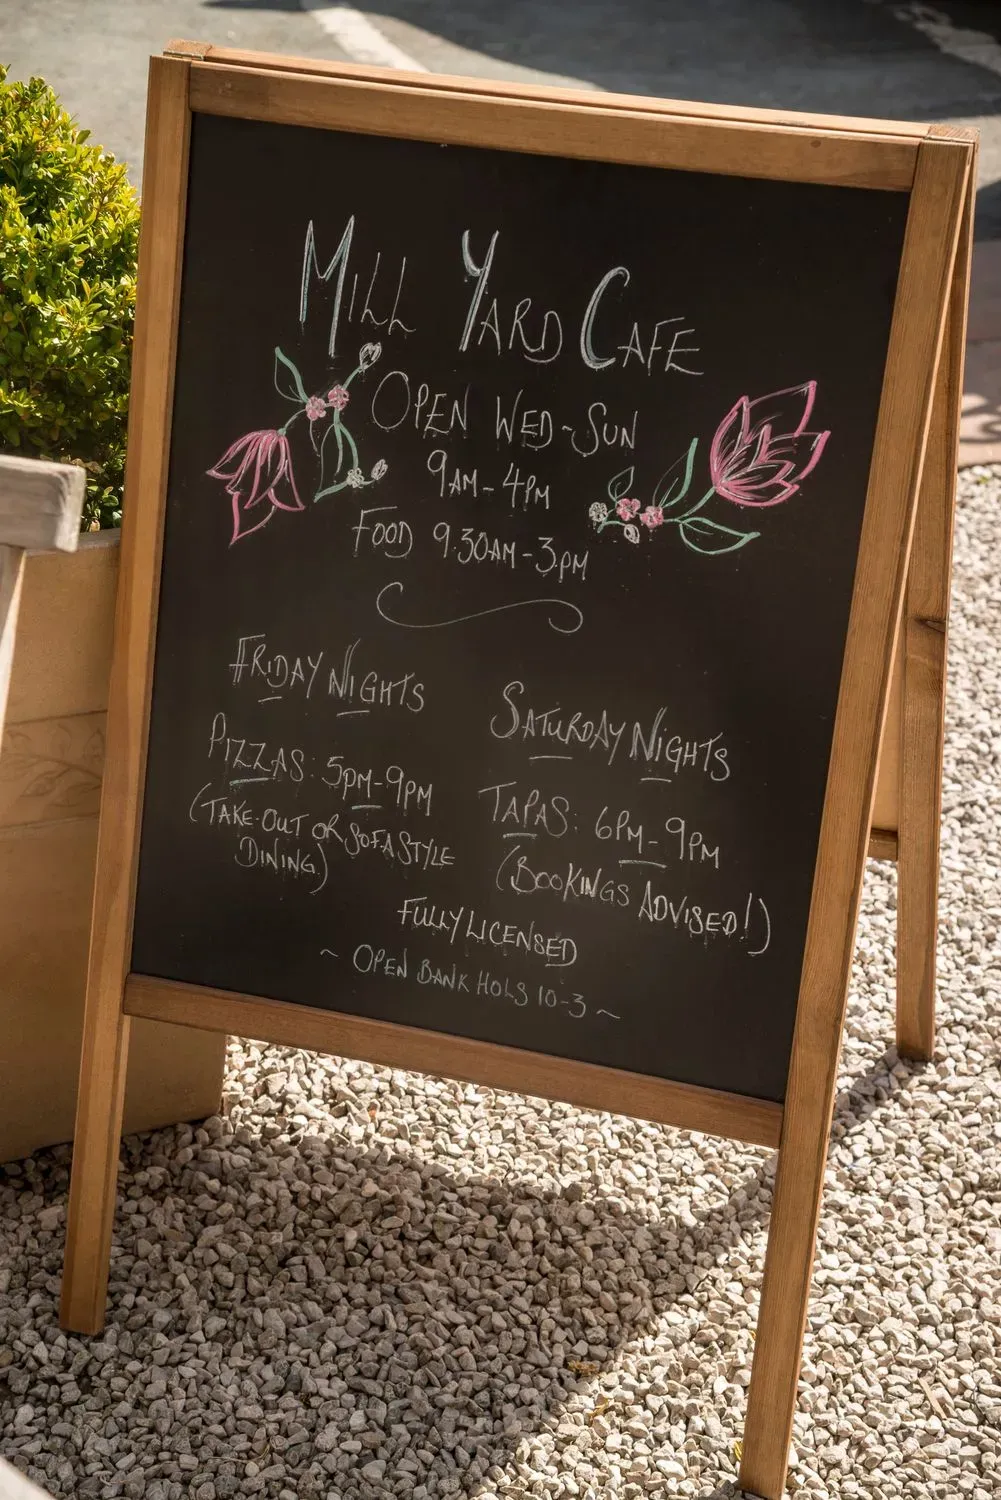 MILL YARD CAFE
OPEN WED~SUN
9AM-4PM
FOOD 9.30AM-3.PM
FRIDAY NIGHTS
PIZZAS: 5PM-9PM
(TAKE-OUT OR SOFA STYLE
DINING)
SATURDAY NIGHTS
TAPAS: 6PM-9PM
(BOOKINGS ADVISED!)
FULLY LICENSED
~ OPEN BANK HOLS 10-3 ~